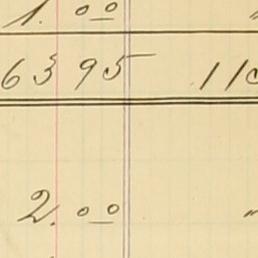 1. 00 "
6395 110
2. 00 "